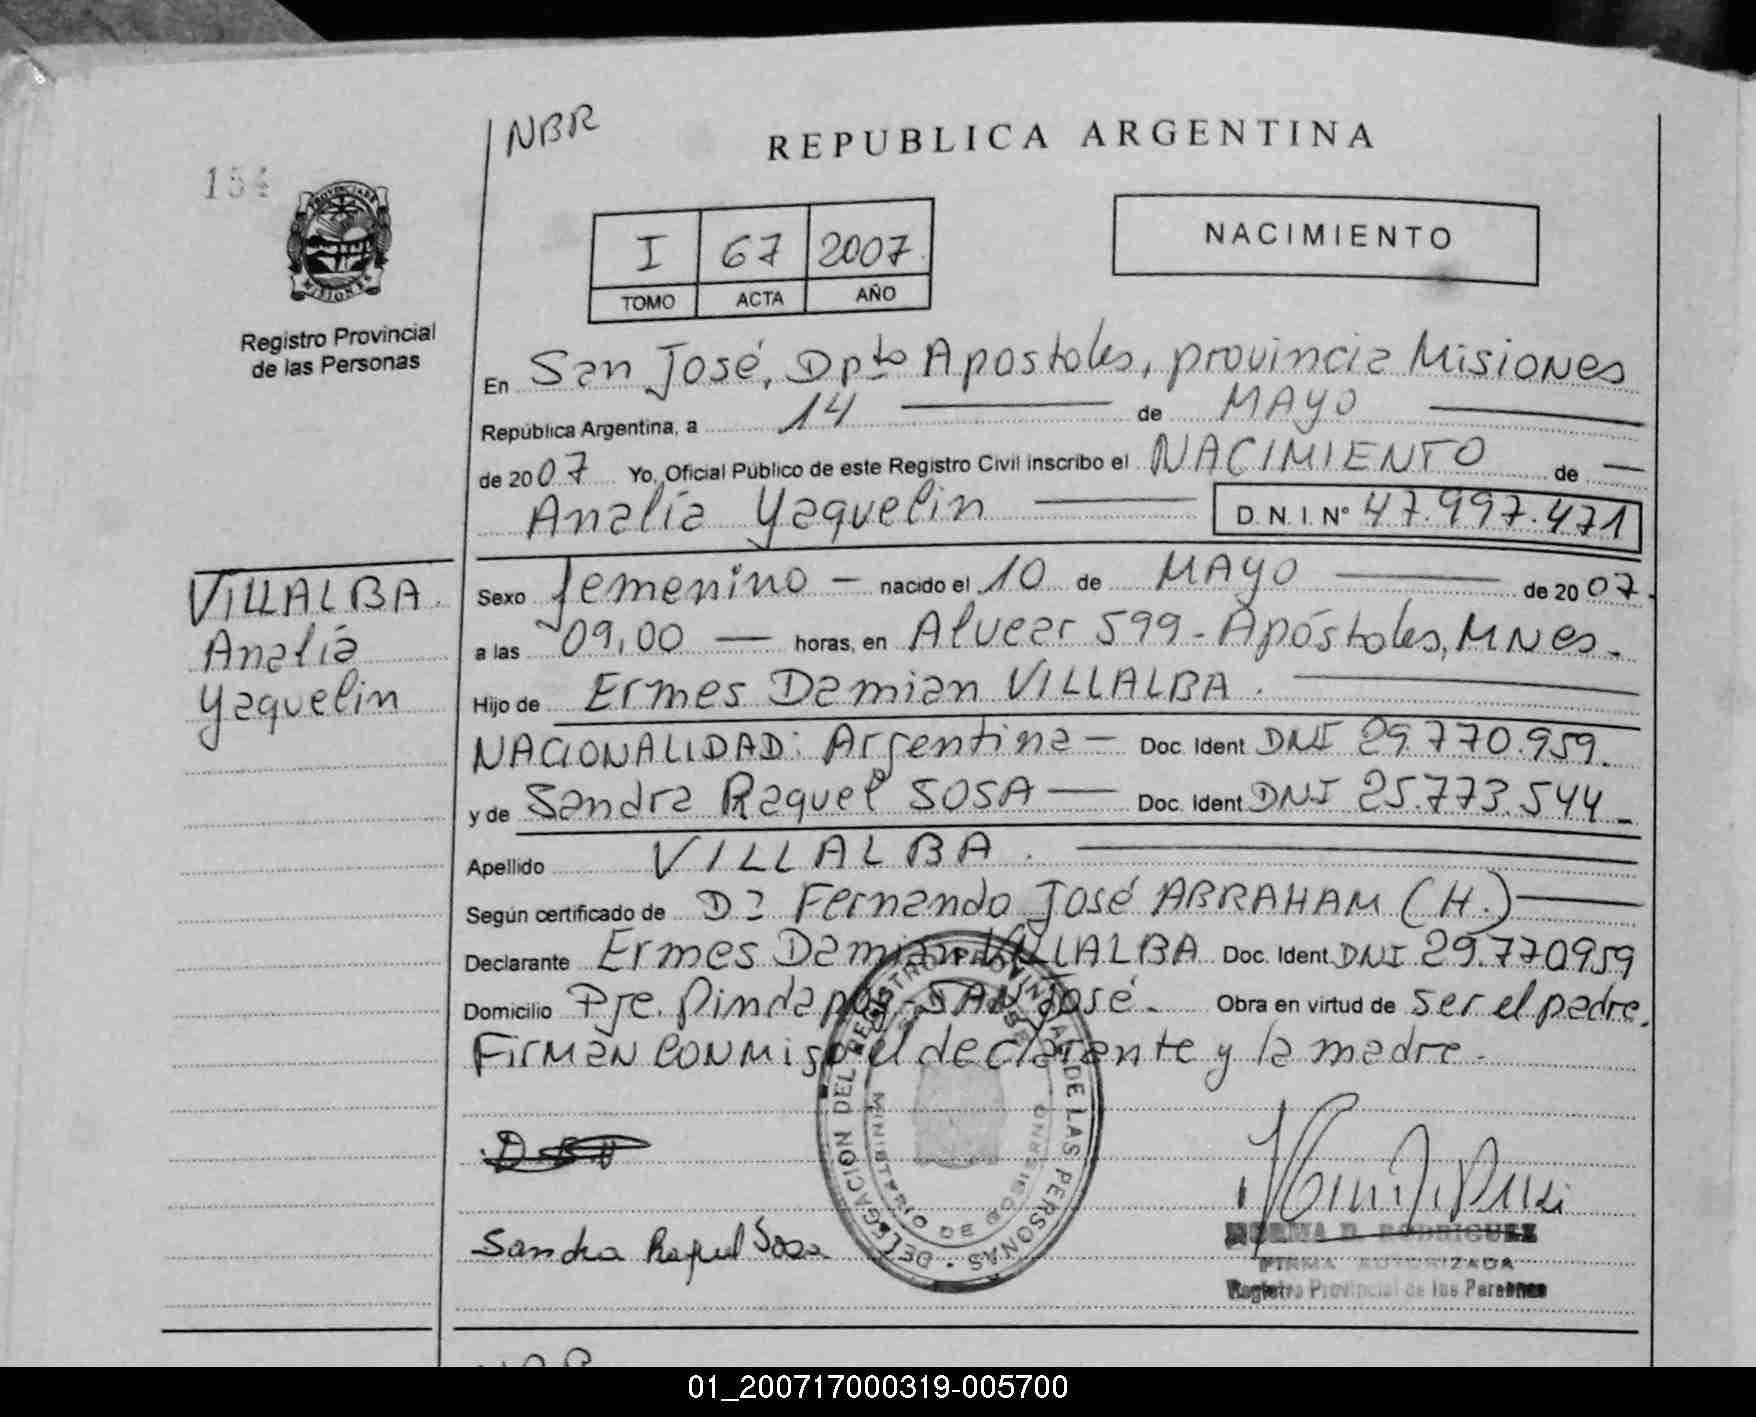 NBR
REPUBLICA ARGENTINA
154
PROVINCIA DE
MISIONES
Registro Provincial
de las Personas
I 67 2007
TOMO ACTA AÑO
NACIMIENTO
En San José, Dpto Apostoles, provincia Misiones
República Argentina, a 14 de MAYO
de 2007 Yo, Oficial Público de este Registro Civil inscribo el NACIMIENTO de
Analía Yaquelin D.N.I. N° 47.997.471
VILLALBA
Analía
Yaquelin
Sexo femenino - nacido el 10 de MAYO de 2007.
a las 09,00 horas, en Alvear 599 - Apóstoles, MNes.
Hijo de Ermes Damian VILLALBA.
NACIONALIDAD: Argentina - Doc. Ident DNI 29.770.959.
y de Sandra Raquel SOSA Doc. Ident DNI 25.773.544
Apellido VILLALBA.
Según certificado de Fernando José ABRAHAM (H.)
Declarante Ermes Damian VILLALBA Doc. Ident DNI 29.770959
Domicilio Pje. Pindapoy - SAN José. Obra en virtud de ser el padre.
Firman conmigo el declarante y la madre.
DELEGACION DEL REGISTRO PROVINCIAL DE LAS PERSONAS
SAN JOSE
MINISTERIO DE GOBIERNO
Sandra Raquel Sosa
NORMA B. RODRIGUEZ
FIRMA AUTORIZADA
Registro Provincial de las Personas
01_200717000319-005700